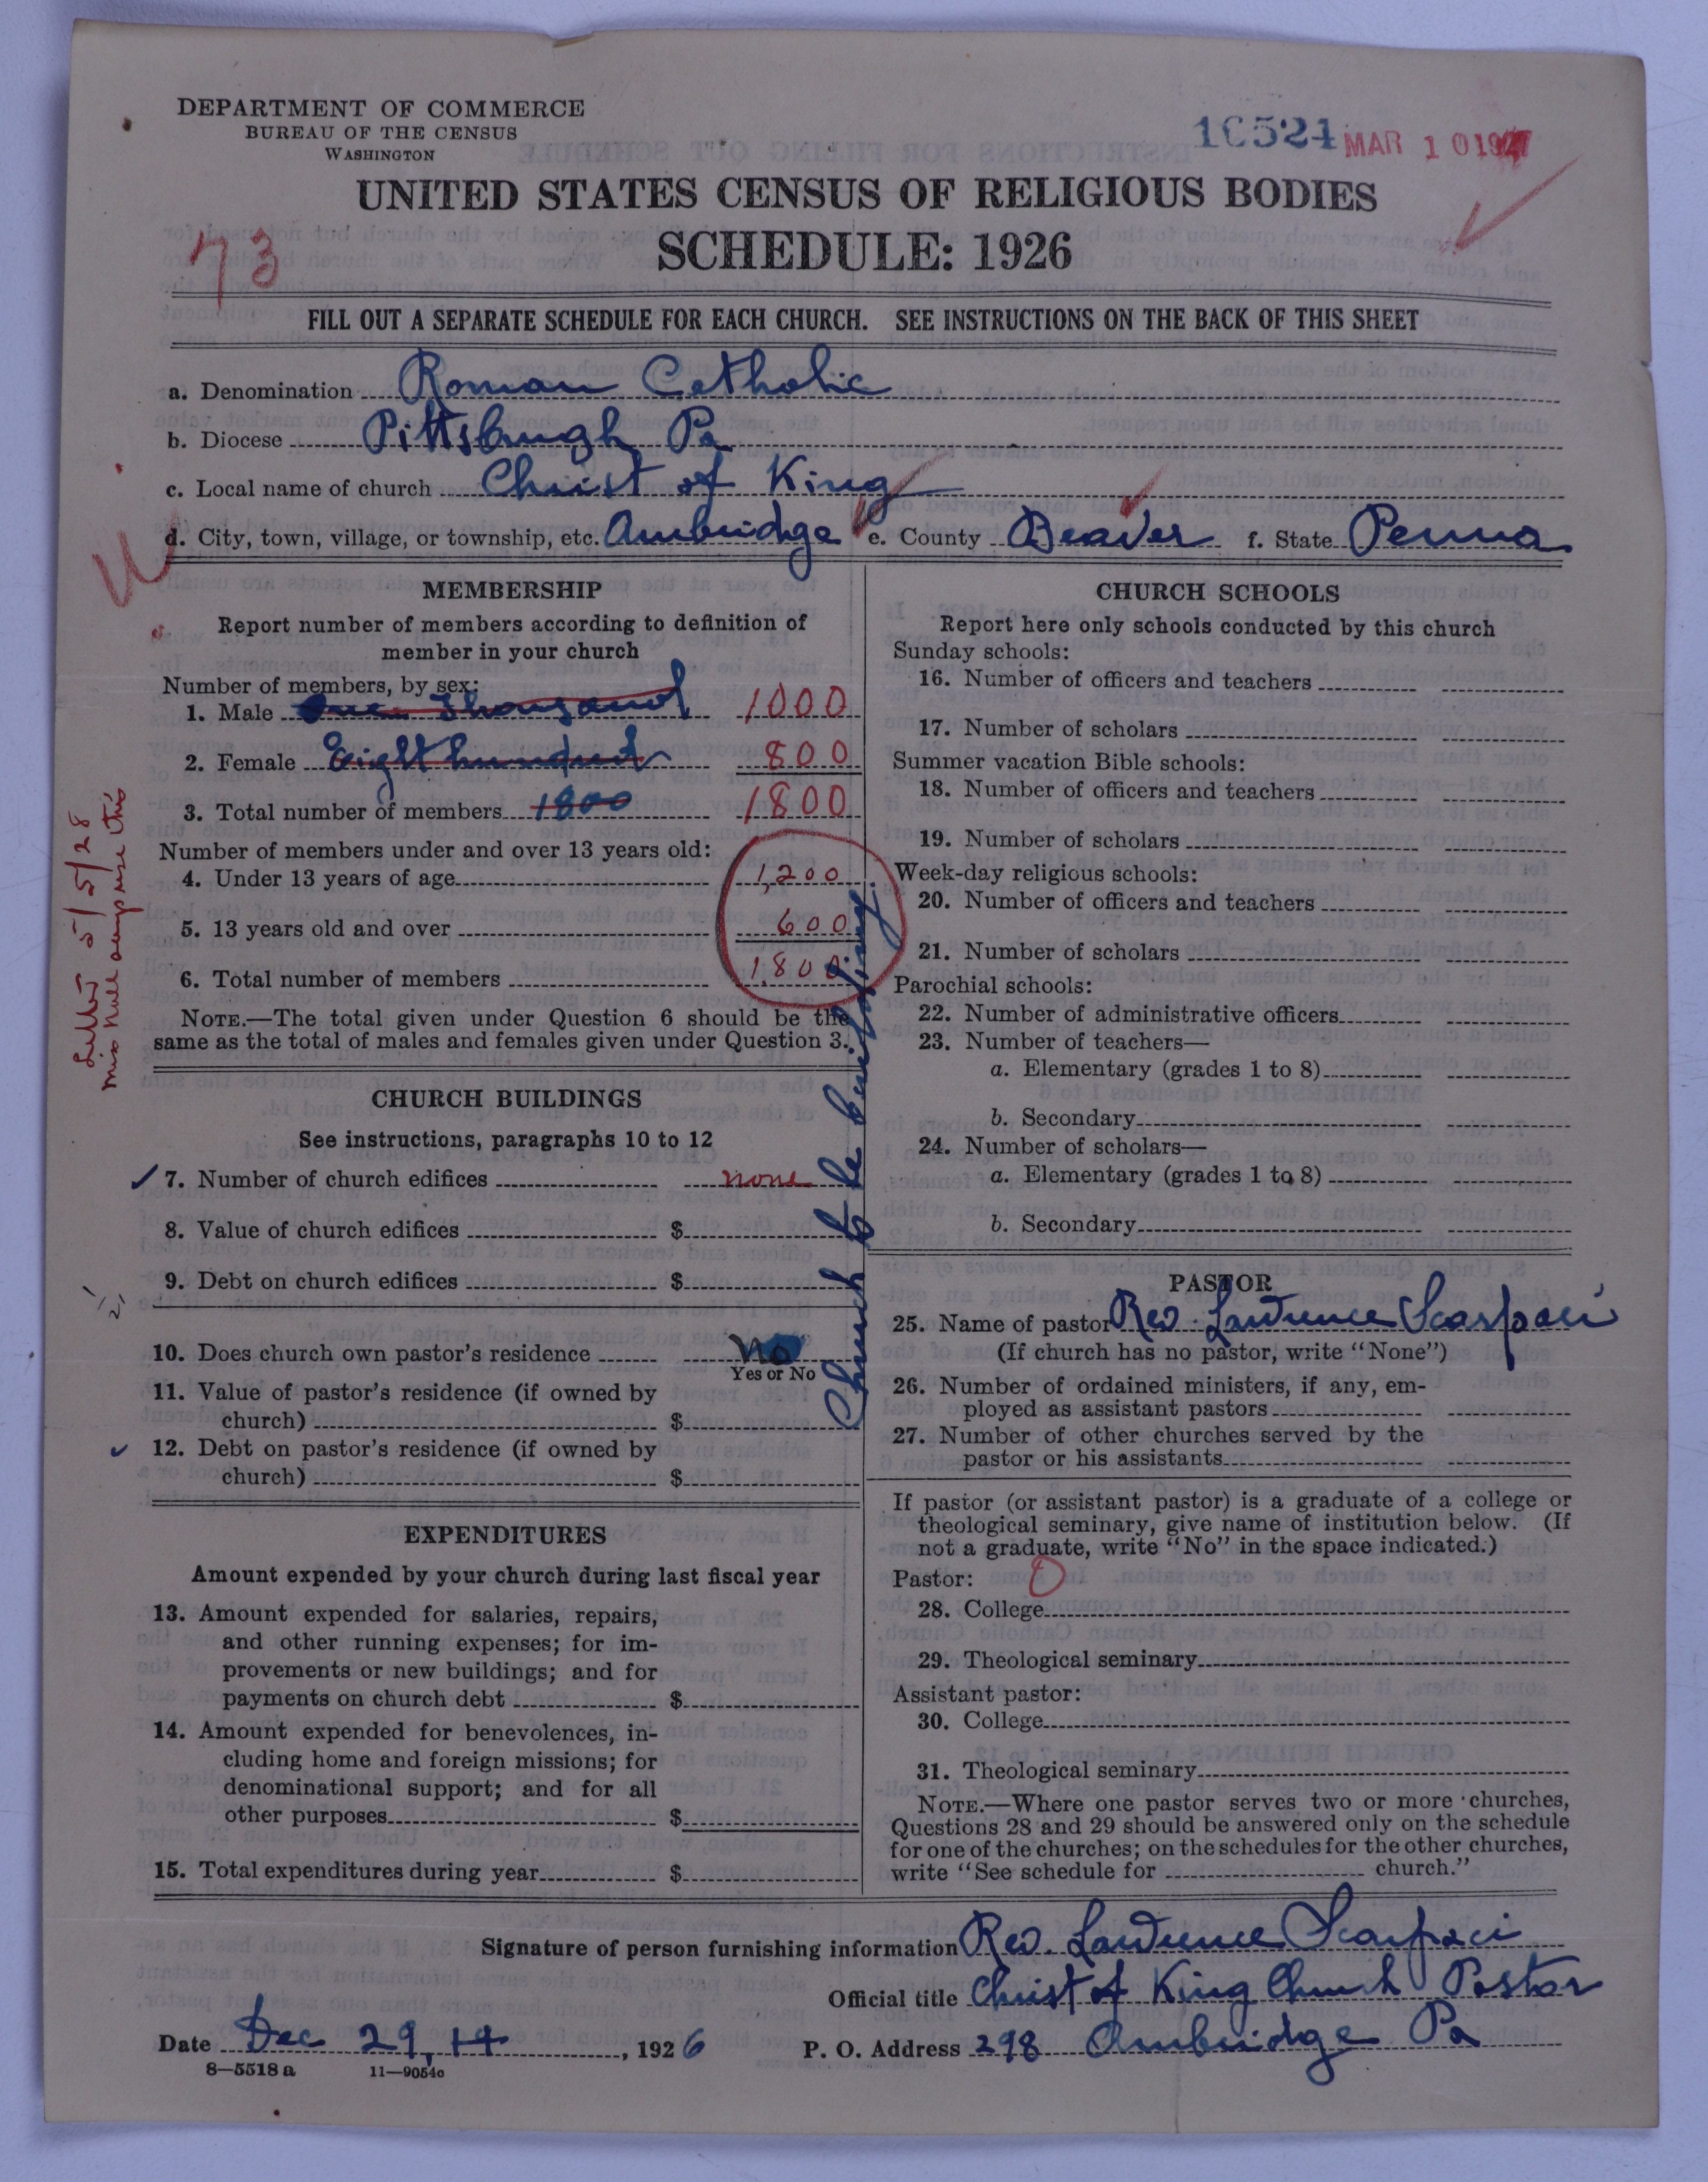 DEPARTMENT OF COMMERCE
BUREAU OF THE CENSUS
WASHINGTON
10524 MAR 10 1927
UNITED STATES CENSUS OF RELIGIOUS BODIES
SCHEDULE: 1926
73
FILL OUT A SEPARATE SCHEDULE FOR EACH CHURCH. SEE INSTRUCTIONS ON THE BACK OF THIS SHEET
a. Denomination Roman Catholic
b. Diocese Pittsburgh Pa
c. Local name of church Christ of King
d. City, town, village, or township, etc. Ambridge e. County Beaver f. State Penna
MEMBERSHIP
Report number of members according to definition of
member in your church
Number of members, by sex:
1. Male One Thousand 1000
2. Female Eight hundred 800
3. Total number of members 1800 1800
Number of members under and over 13 years old:
4. Under 13 years of age 1,200
5. 13 years old and over 600
6. Total number of members 1,800
NOTE.—The total given under Question 6 should be the
same as the total of males and females given under Question 3.
Letter 5/5/28
CHURCH BUILDINGS
See instructions, paragraphs 10 to 12
7. Number of church edifices none
8. Value of church edifices $
9. Debt on church edifices $
10. Does church own pastor's residence No
Yes or No
11. Value of pastor's residence (if owned by
church) $
12. Debt on pastor's residence (if owned by
church) $
Church to be
EXPENDITURES
Amount expended by your church during last fiscal year
13. Amount expended for salaries, repairs,
and other running expenses; for im-
provements or new buildings; and for
payments on church debt $
14. Amount expended for benevolences, in-
cluding home and foreign missions; for
denominational support; and for all
other purposes $
15. Total expenditures during year $
CHURCH SCHOOLS
Report here only schools conducted by this church
Sunday schools:
16. Number of officers and teachers
17. Number of scholars
Summer vacation Bible schools:
18. Number of officers and teachers
19. Number of scholars
Week-day religious schools:
20. Number of officers and teachers
21. Number of scholars
Parochial schools:
22. Number of administrative officers
23. Number of teachers—
a. Elementary (grades 1 to 8)
b. Secondary
24. Number of scholars—
a. Elementary (grades 1 to 8)
b. Secondary
PASTOR
25. Name of pastor Rev. Lawrence Scarpaci
(If church has no pastor, write "None")
26. Number of ordained ministers, if any, em-
ployed as assistant pastors
27. Number of other churches served by the
pastor or his assistants
If pastor (or assistant pastor) is a graduate of a college or
theological seminary, give name of institution below. (If
not a graduate, write "No" in the space indicated.)
Pastor: 0
28. College
29. Theological seminary
Assistant pastor:
30. College
31. Theological seminary
NOTE.—Where one pastor serves two or more churches,
Questions 28 and 29 should be answered only on the schedule
for one of the churches; on the schedules for the other churches,
write "See schedule for church."
Signature of person furnishing information Rev. Lawrence Scarpaci
Official title Christ of King Church Pastor
Date Dec 29, 14, 1926 P. O. Address 298 Ambridge Pa
8—5518 a 11—9054c